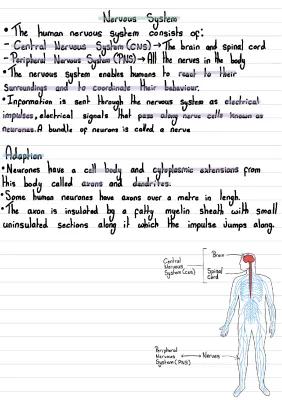 Nervous System
• The human nervous system consists of:
- Central Nervous System (CNS) → The brain and spinal cord
- Peripheral Nervous System (PNS) → All the nerves in the body
• The nervous system enables humans to react to their
Surroundings and to coordinate their behaviour.
• Information is sent through the nervous system as electrical
impulses, electrical signals that pass along nerve cells known as
neurones. A bundle of neurons is called a nerve
Adaption
• Neurones have a cell body and cytoplasmic extensions from
this body called axons and dendrites.
• Some human neurones have axons over a metre in lengh.
• The axon is insulated by a fatty myelin sheath with small
uninsulated sections along it which the impulse jumps along.
Central
Nervous
System (CNS)
Brain
Spinal
cord
Peripheral
Nervous
System (PNS)
Nerves